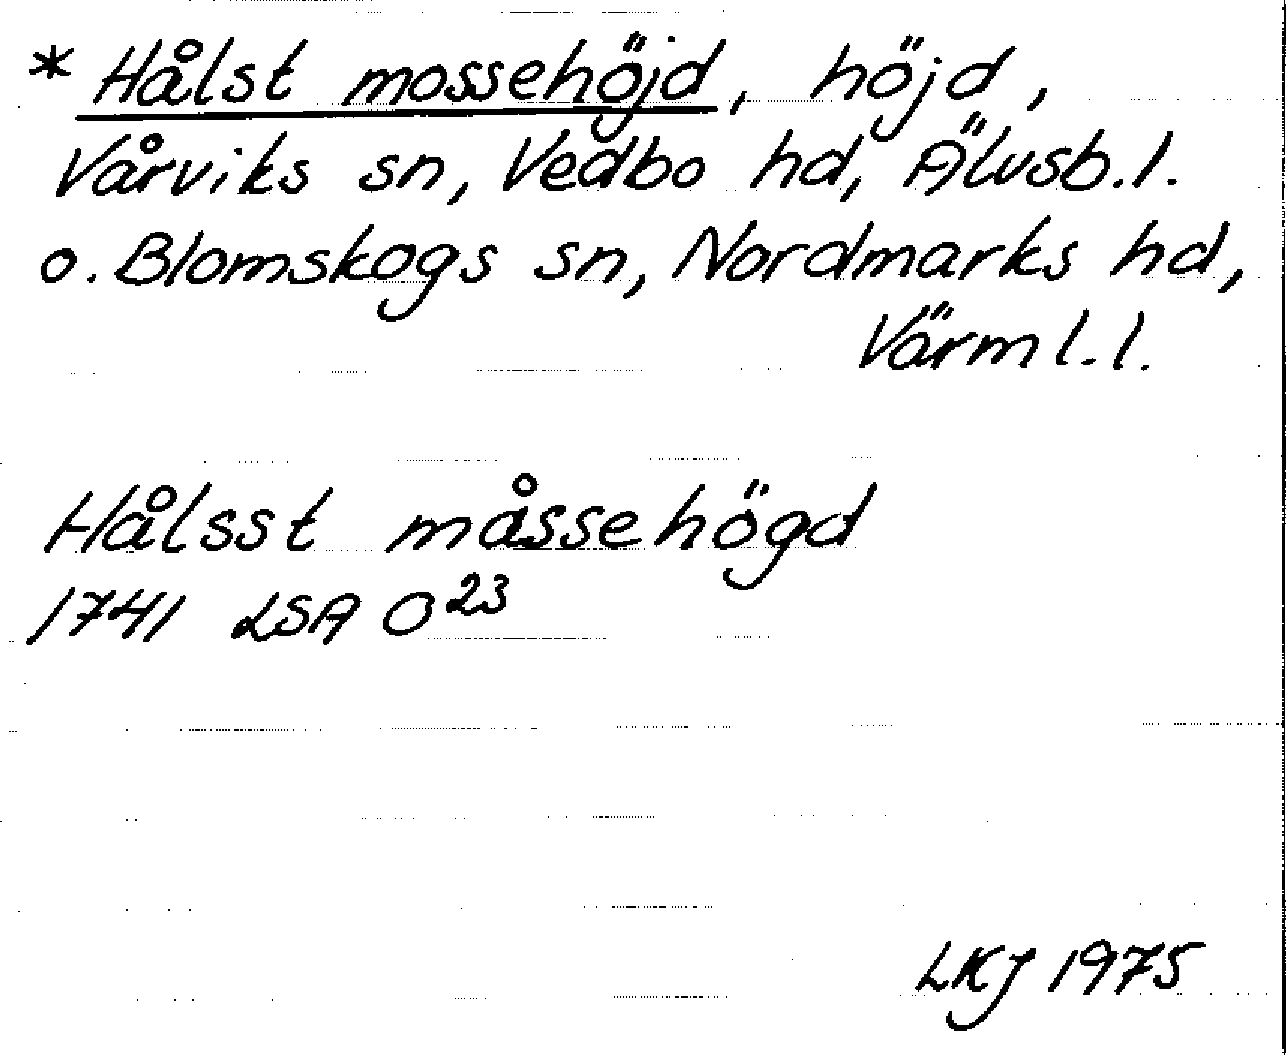 * Hålst mossehöjd, höjd,
Vårviks sn, Vedbo hd, Älvsb.l.
o. Blomskogs sn, Nordmarks hd,
Värml.l.
Hålsst måssehögd
1741 LSA O23
LKJ 1975